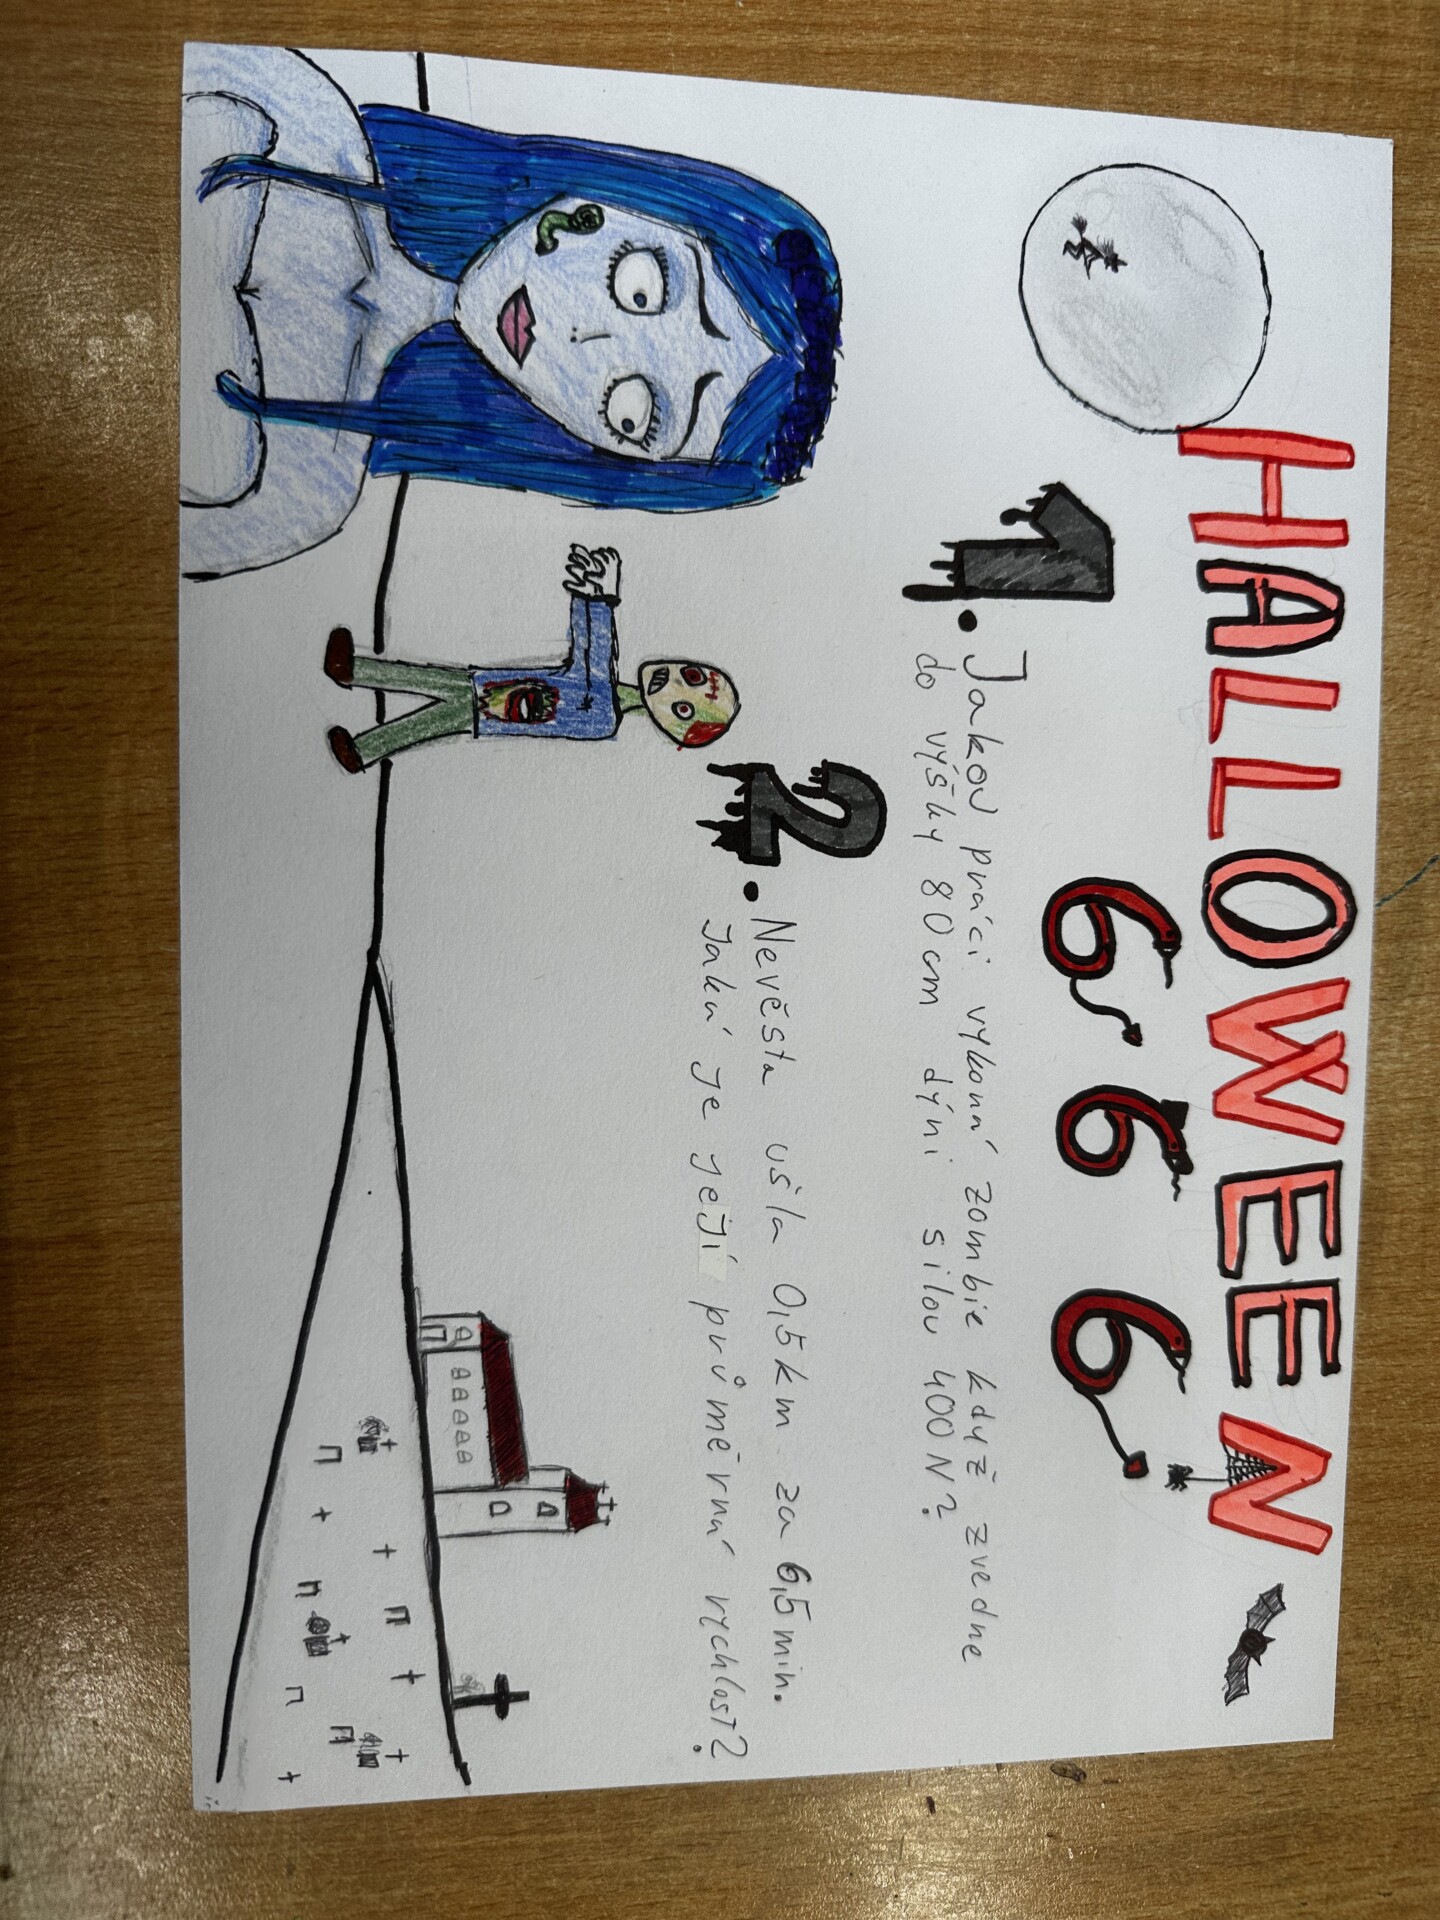 HALLOWEEN
6 6 6
1. Jakou práci vykoná zombie když zvedne
do výšky 80cm dýni silou 400N?
2. Nevěsta ušla 0,5km za 6,5min.
Jaká je její průměrná rychlost?